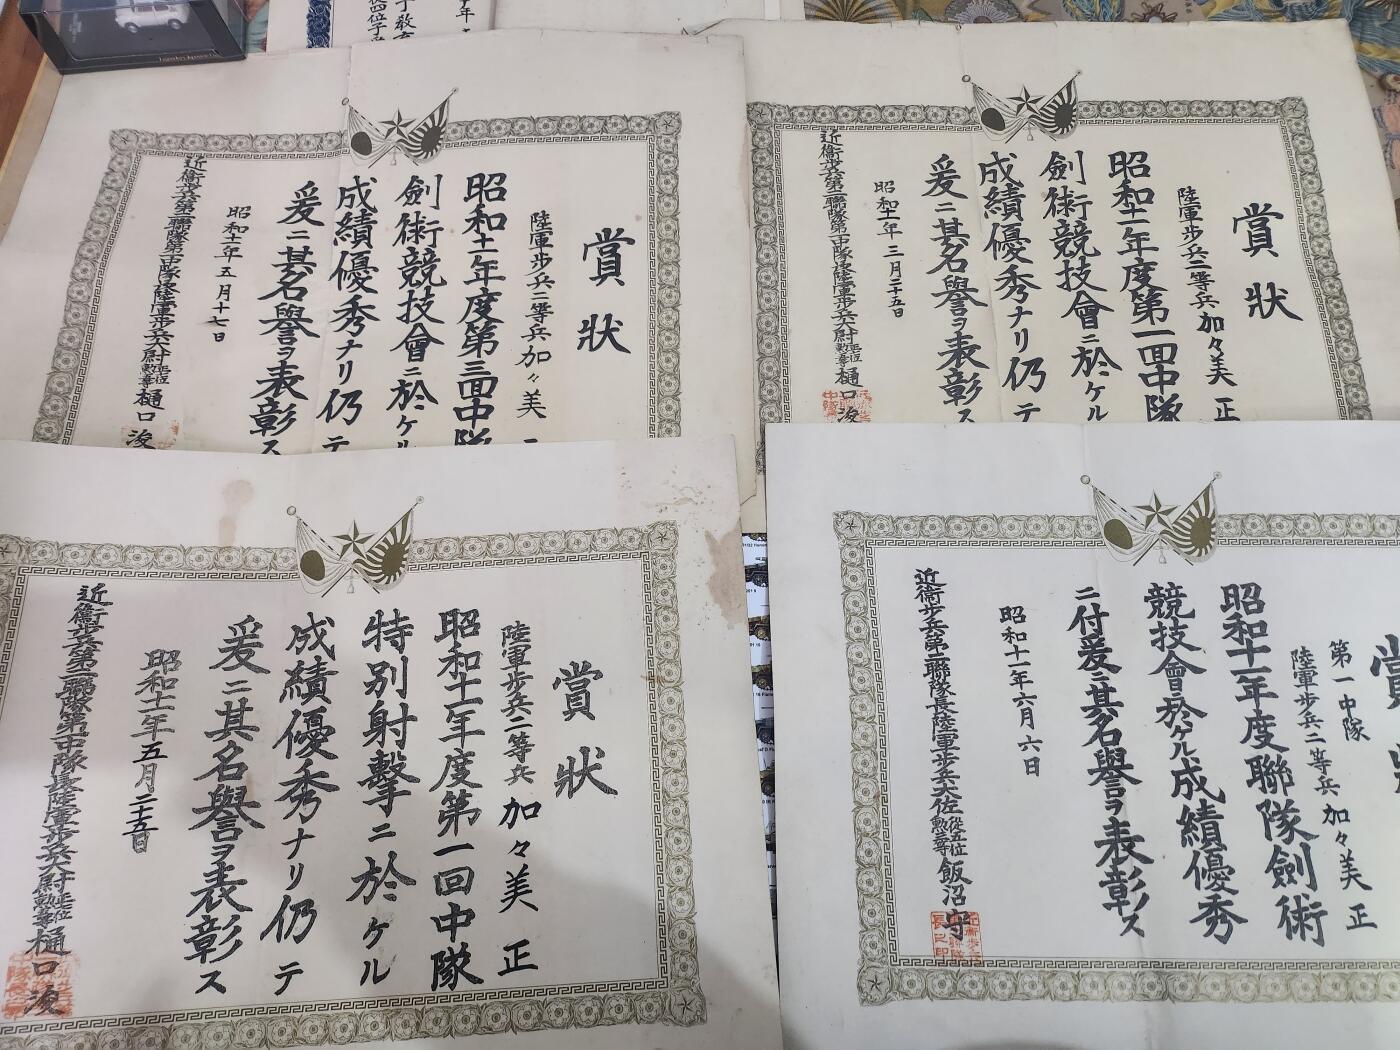 賞狀
陸軍步兵二等兵加々美正
昭和十一年度第一回中隊
劍術競技會ニ於ケル
成績優秀ナリ仍テ
爰ニ其名譽ヲ表彰ス
昭和十一年三月二十五日
近衞步兵第二聯隊第一中隊長陸軍步兵大尉樋口浚
賞狀
陸軍步兵二等兵加々美
昭和十一年度第三回中隊
劍術競技會ニ於ケル
成績優秀ナリ仍テ
爰ニ其名譽ヲ表彰ス
昭和十一年五月十七日
近衞步兵第二聯隊第一中隊長陸軍步兵大尉樋口浚
賞
第一中隊
陸軍步兵二等兵加々美正
昭和十一年度聯隊劍術
競技會於ケル成績優秀
ニ付爰ニ其名譽ヲ表彰ス
昭和十一年六月六日
近衞步兵第二聯隊長陸軍步兵大佐從五位勲三等飯沼守
賞狀
陸軍步兵二等兵加々美正
昭和十一年度第一回中隊
特別射擊ニ於ケル
成績優秀ナリ仍テ
爰ニ其名譽ヲ表彰ス
昭和十一年五月二十五日
近衞步兵第二聯隊第一中隊長陸軍步兵大尉樋口浚